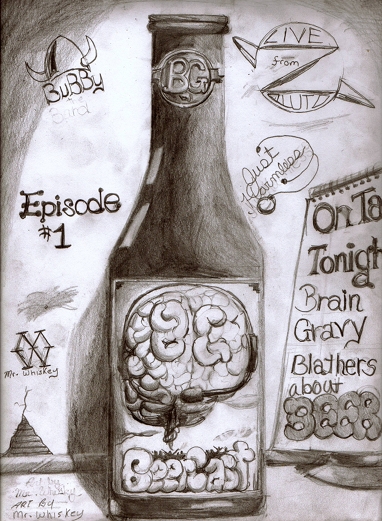 BUBBY
LIVE
from
BG
Just
Harmless
Episode
#1
On Ta
Tonigh
Brain
Gravy
Blathers
about
BEER
BG
MW
Mr. Whiskey
BeerCast
ART By
Mr. Whiskey